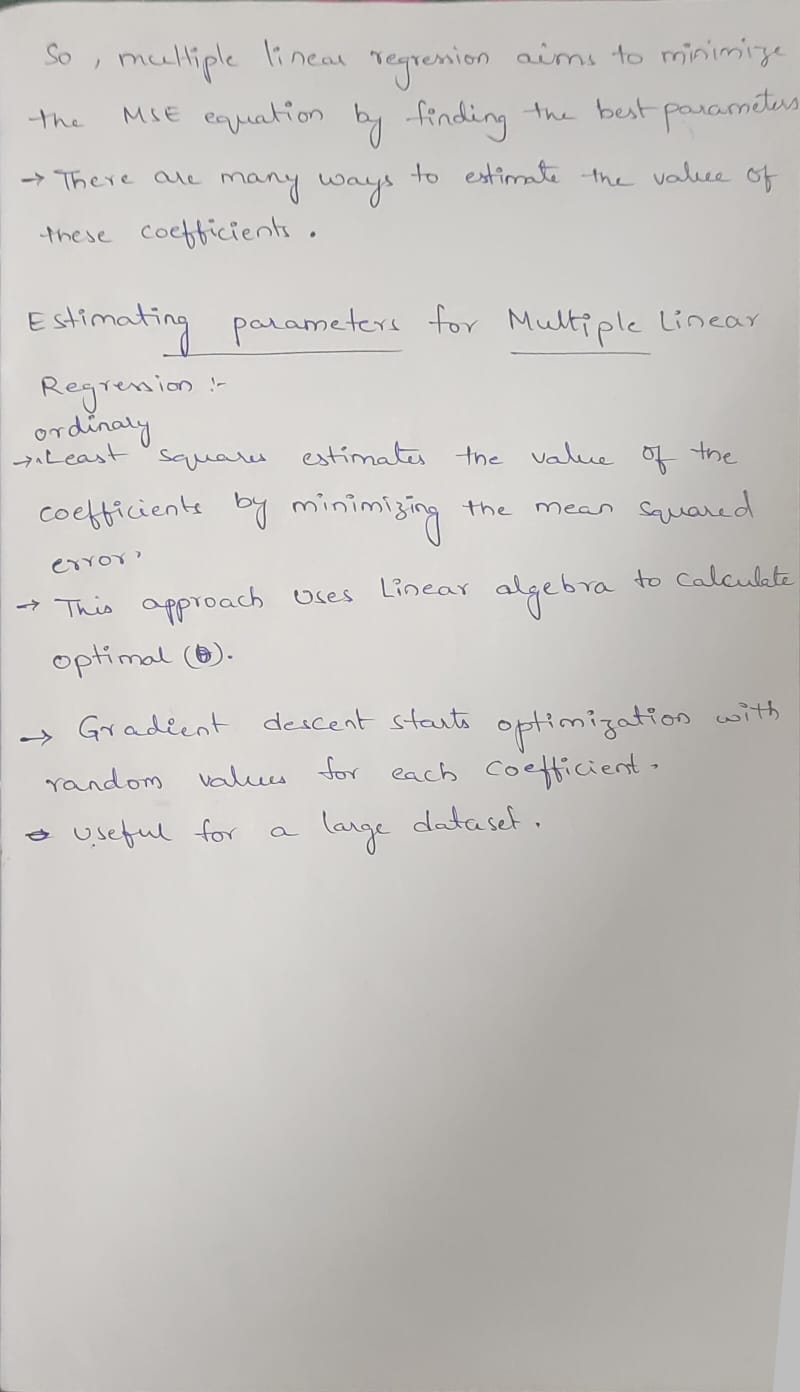 So, multiple linear regression aims to minimize
the MSE equation by finding the best parameters
→ There are many ways to estimate the value of
these coefficients.
Estimating parameters for Multiple Linear
Regression :-
ordinary
→ Least squares estimates the value of the
coefficients by minimizing the mean squared
error.
→ This approach uses Linear algebra to calculate
optimal (θ).
→ Gradient descent starts optimization with
random values for each coefficient.
→ Useful for a large dataset.